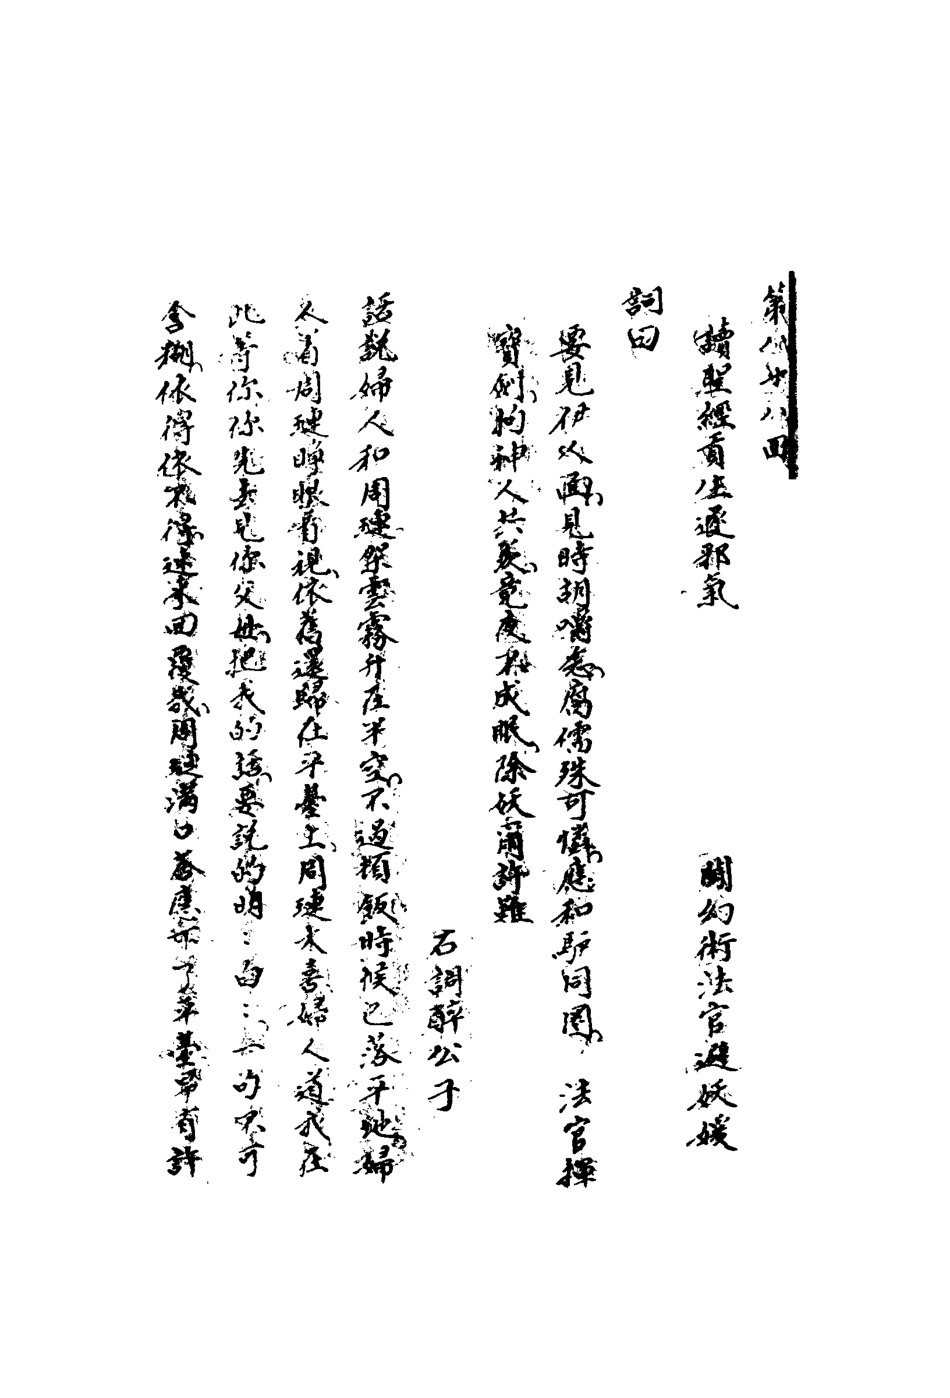 第八十八回
讀聖經貢生逐邪氣　鬪幻術法官避妖媛
詞曰
要見伊人面見時胡嚼念腐儒殊可憐應和馿同圈　法官揮
寶劍拘神人共羨竟度不成眠除妖術許難
右調醉公子
話說婦人和周璉架雲霧升在半空不過頓飯時候已落平地婦
人着周璉睁眼看視依舊還歸在平臺上周璉大喜婦人道我在
此等你你先去見你父母把我的話要說的明：白：一句不可
含糊依得依不得速來回覆我周璉滿口荅應下了平臺早有許